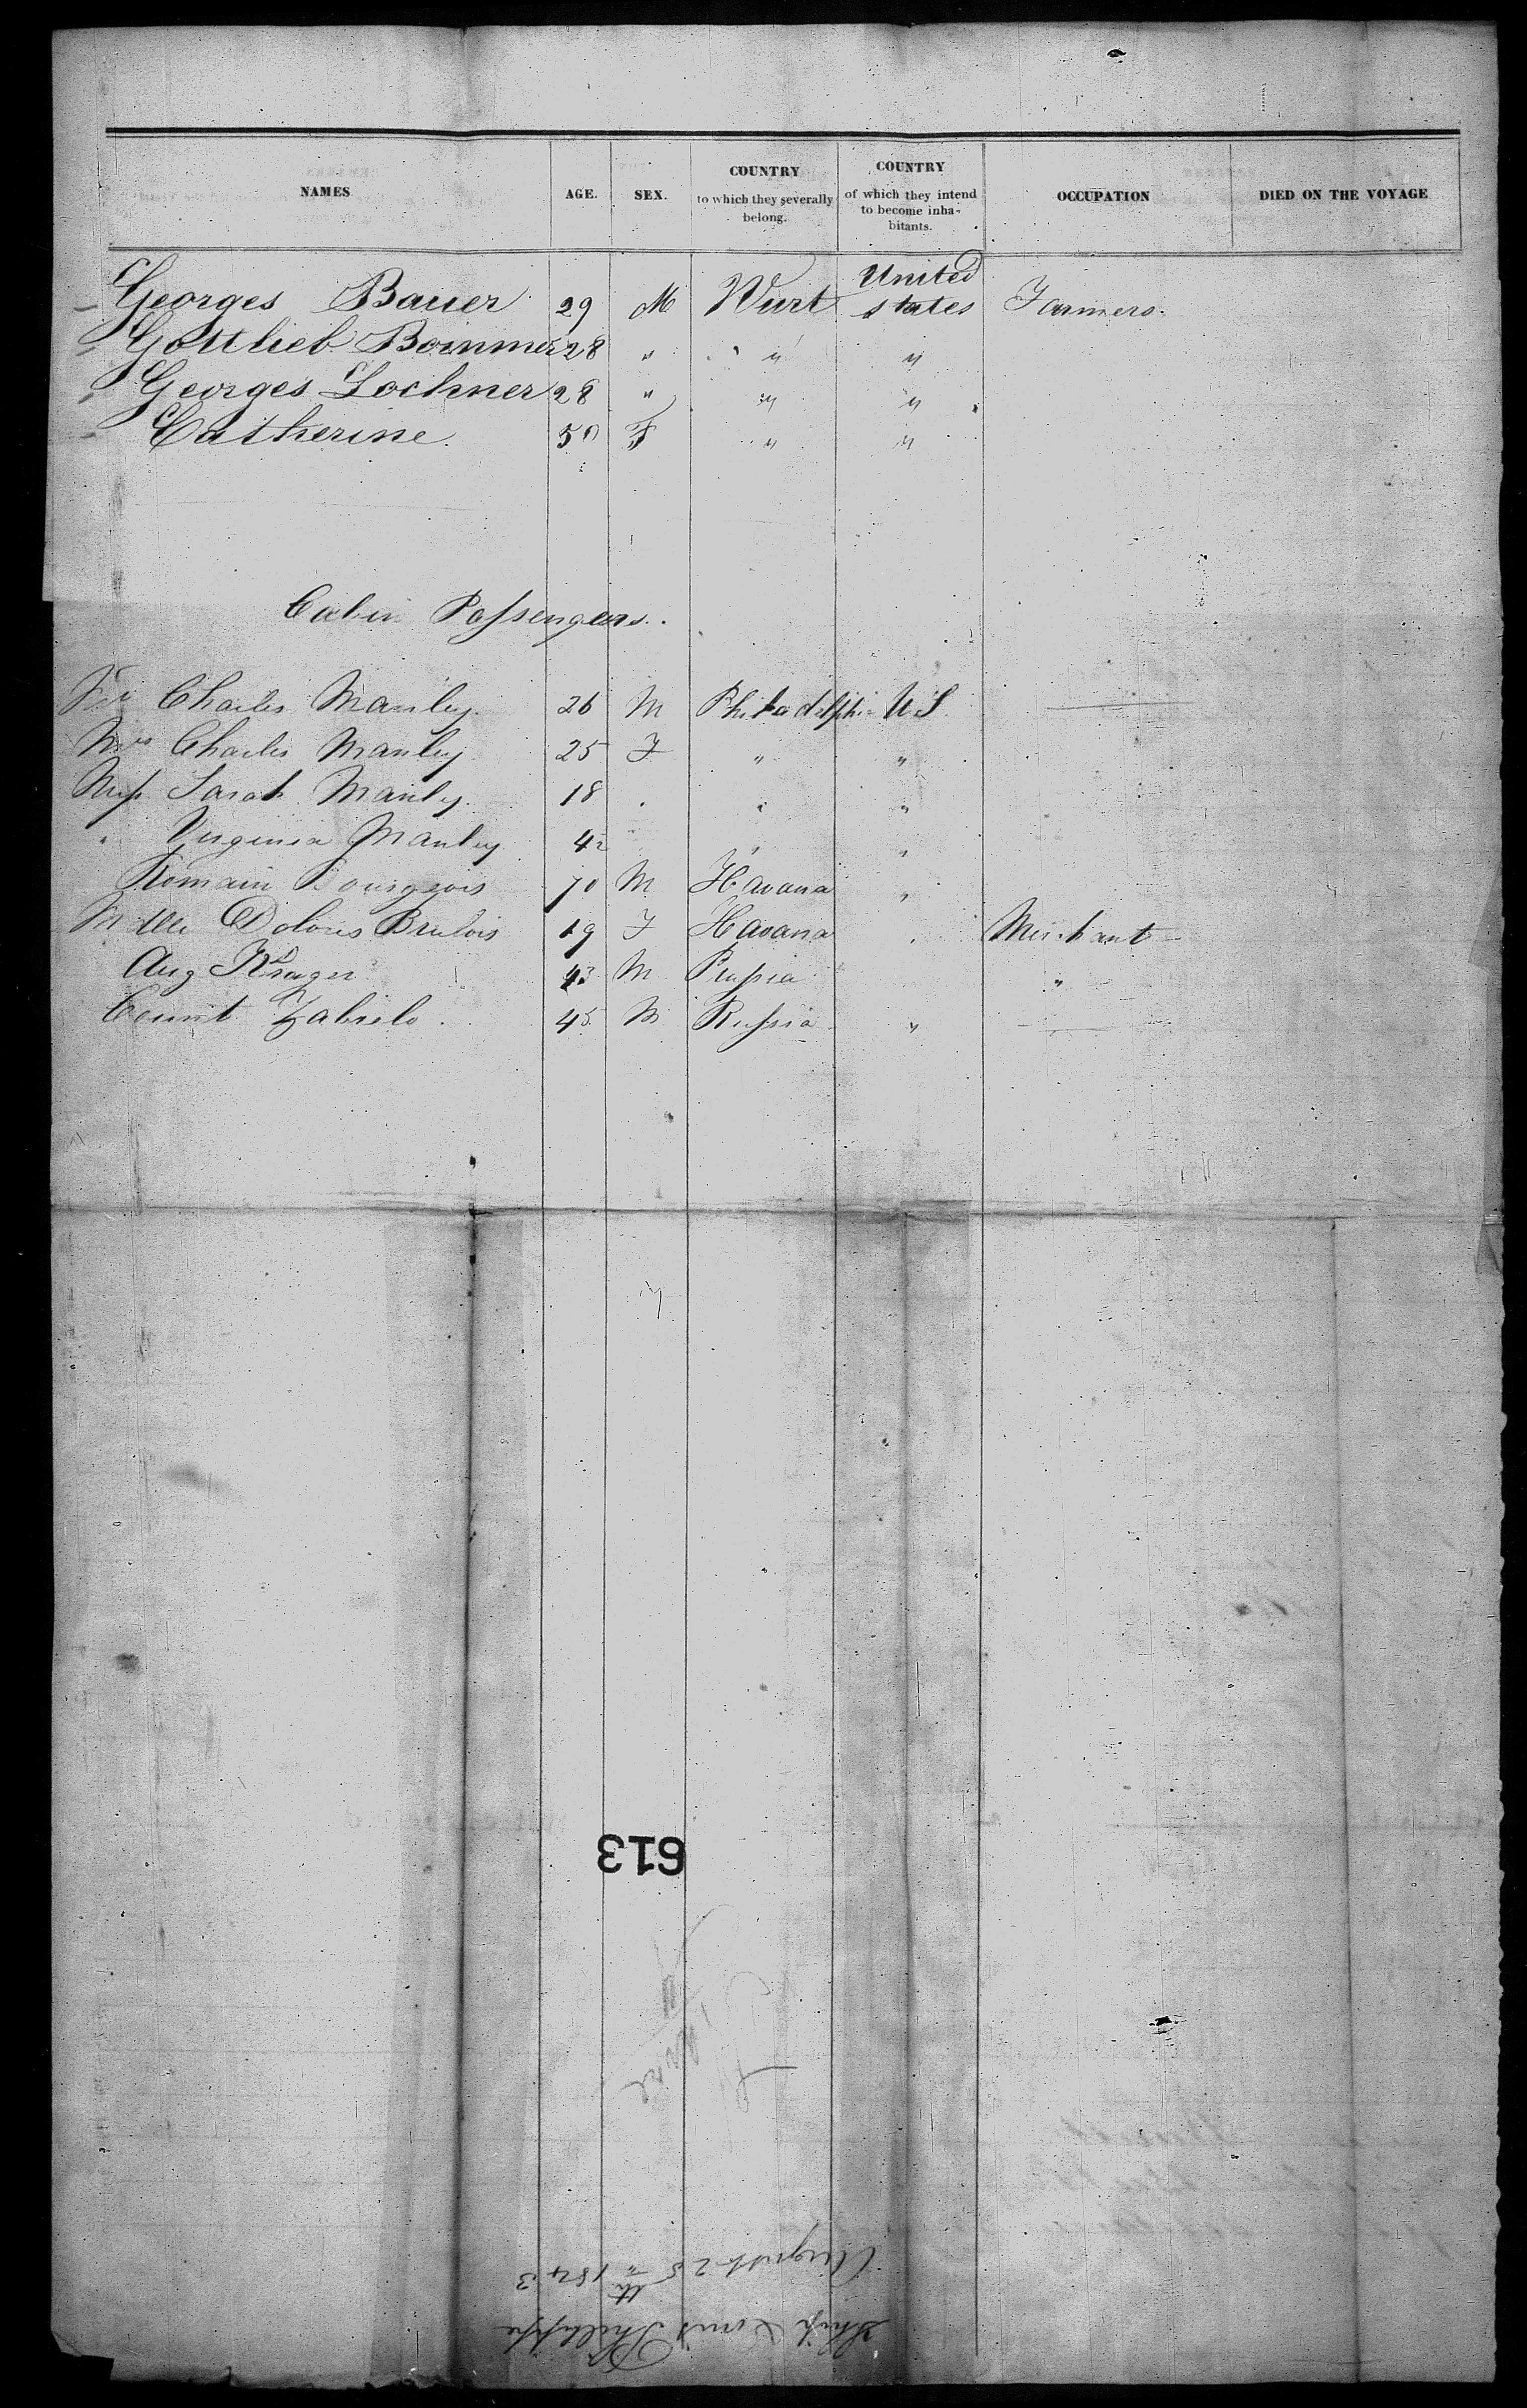 NAMES AGE. SEX. COUNTRY to which they severally belong. COUNTRY of which they intend to become inha- bitants. OCCUPATION DIED ON THE VOYAGE
Georges Bauer 29 M Wurt United states Farmers.
Gottlieb Bommer 28 " " "
Georges Lochner 28 " " "
Catherine 50 F " "
Cabin Passengers.
Charles Manley 26 M Philadelphia U S
Mrs Charles Manley 25 F " "
Miss Sarah Manley 18 " "
" Virginia Manley " "
Romain Bourgeois 70 M Havana "
Mlle Dolores 19 F Havana " Merchant
Aug Kruger 43 M Prussia "
Count 45 M Russia "
613
August 25th 1843
Ship Louis Philippe